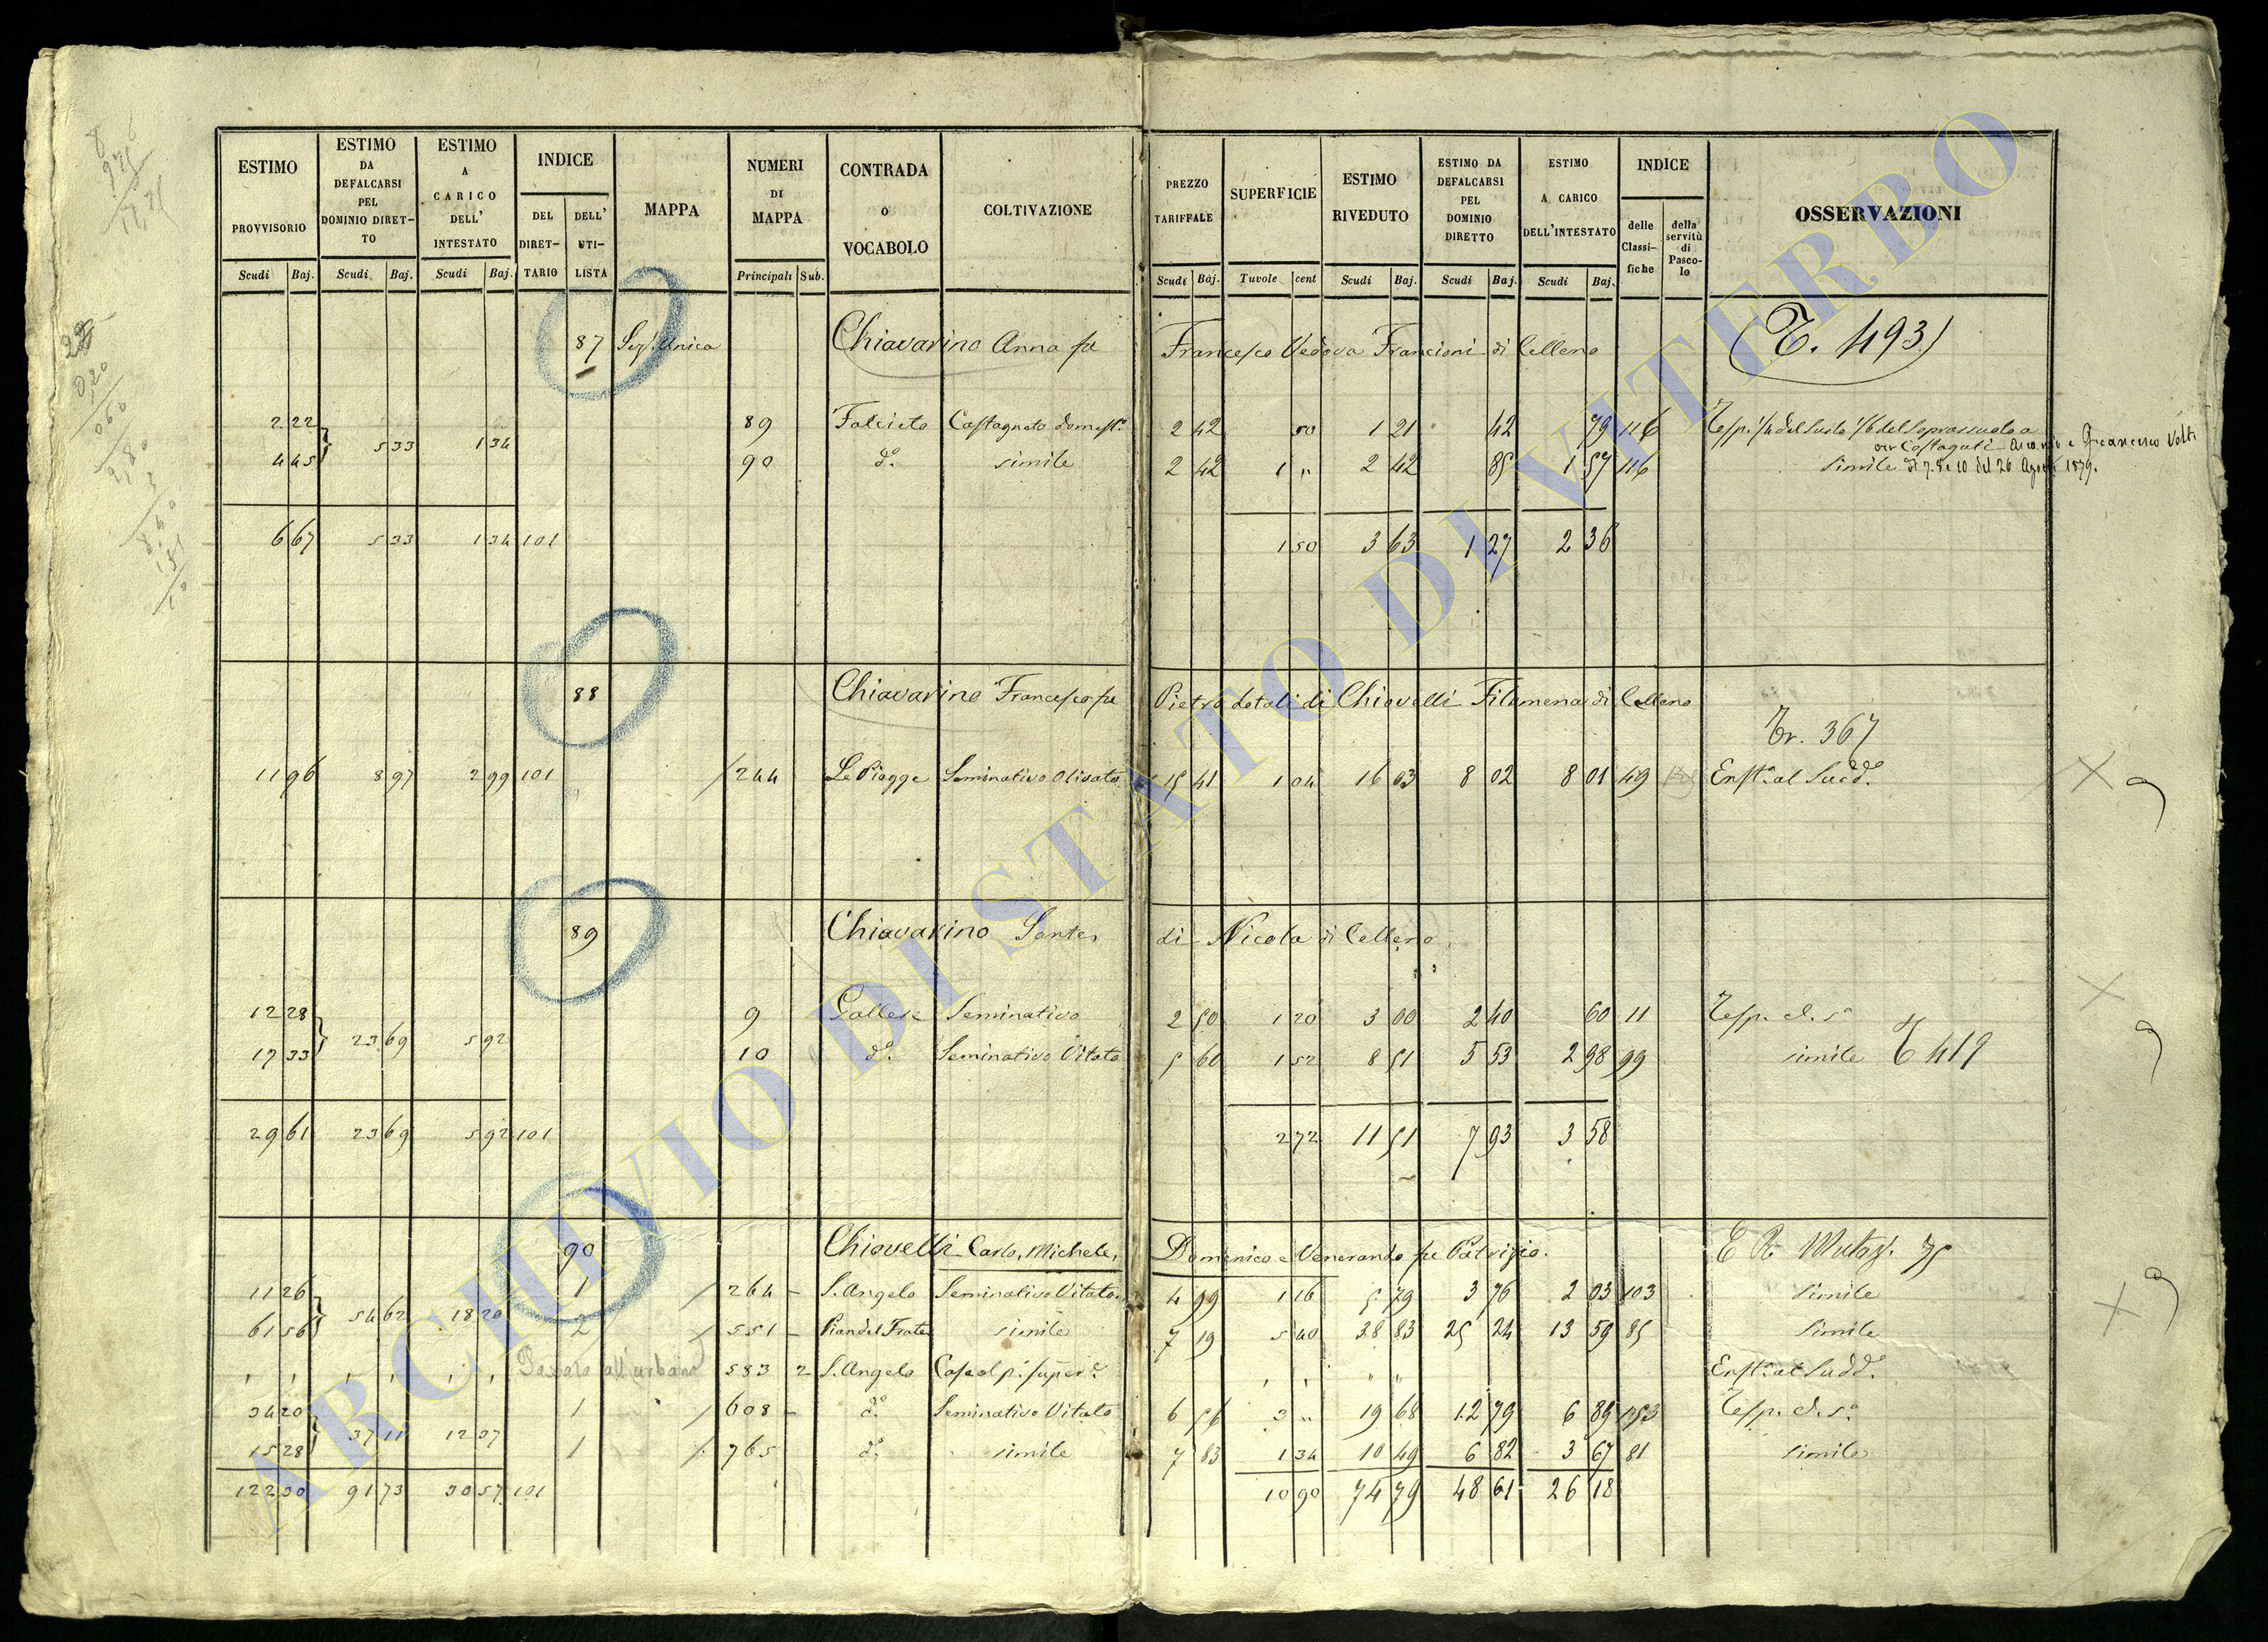 ESTIMO PROVVISORIO Scudi Baj.
ESTIMO DA DEFALCARSI PEL DOMINIO DIRETTO Scudi Baj.
ESTIMO A CARICO DELL' INTESTATO Scudi Baj.
INDICE DEL DIRETTARIO DELL' UTILISTA
MAPPA
NUMERI DI MAPPA Principali Sub.
CONTRADA o VOCABOLO
COLTIVAZIONE
PREZZO TARIFFALE Scudi Baj.
SUPERFICIE Tuvole cent
ESTIMO RIVEDUTO Scudi Baj.
ESTIMO DA DEFALCARSI PEL DOMINIO DIRETTO Scudi Baj.
ESTIMO A CARICO DELL'INTESTATO Scudi Baj.
INDICE delle Classifiche della servitù di Pascolo
OSSERVAZIONI
87 Sez. Unica Chiavarino Anna fu Francesco Vedova Francioni di Celleno (T. 493)
2 22 89 Falcieto Castagneto domest. 2 42 50 1 21 42 79 116 1/4 del Suolo 1/6 del Soprassuolo a
5 33 1 34
4 45 90 d.o simile 2 42 1 " 2 42 85 1 57 116 simile 7. 8 e 10 del 26 Agosto 1879.
6 67 5 33 1 34 101 1 50 3 63 1 27 2 36
88 Chiavarino Francesco fu Pietro dotali di Chiovelli Filomena di Celleno
Tr. 367
11 96 8 97 2 99 101 244 Le Piagge Seminativo Olivato 15 41 1 04 16 03 8 02 8 01 49 Enft.a al Sudd.o
89 Chiavarino Sante di Nicola di Celleno
12 28 9 Pallese Seminativo 2 50 1 20 3 00 2 40 60 11 Resp. c. s.a
23 69 5 92
17 33 10 d.o Seminativo Vitato 5 60 1 52 8 51 5 53 2 98 99 simile T 419
29 61 23 69 5 92 101 2 72 11 51 7 93 3 58
90 Chiovelli Carlo, Michele, Domenico e Venerando fu Patrizio.
11 26 1 264 S. Angelo Seminativo Vitato 4 99 1 16 5 79 3 76 2 03 103 simile
54 62 18 20
61 56 2 551 Pian del Frate simile 7 19 5 40 38 83 25 24 13 59 85 simile
Passato all'urbano 583 2 S. Angelo Casa al p.o super.e Enft.a al Sudd.o
34 20 1 608 d.o Seminativo Vitato 6 56 3 " 19 68 12 79 6 89 153 Resp. c. s.a
37 11 12 37
15 28 1 765 d.o simile 7 83 1 34 10 49 6 82 3 67 81 simile
122 30 91 73 30 57 101 10 90 74 79 48 61 26 18
ARCHIVIO DI STATO DI VITERBO